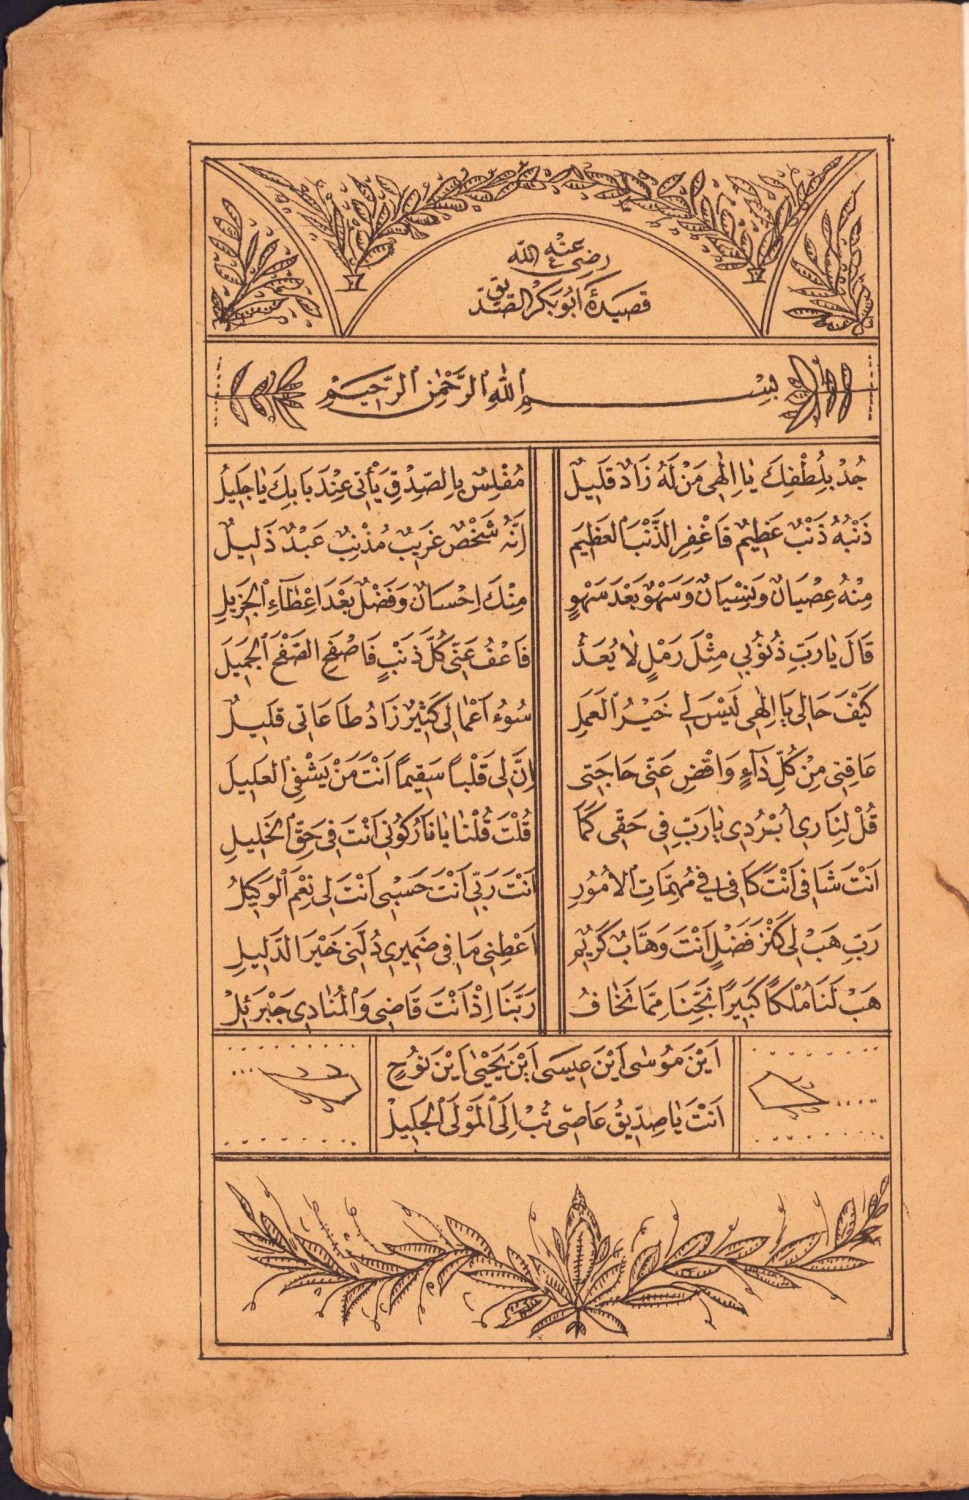 قَصِيدَۀ اَبُو بَكْرِ الصِّدِّيق
رضى الله عنه
بِسْمِ اللهِ الرَّحْمٰنِ الرَّحِيمِ
جُدْ بِلُطْفِكَ يَا اِلٰهِى مَنْ لَهُ زَادٌ قَلِيلٌ مُفْلِسٌ بِالصِّدْقِ يَأْتِى عِنْدَ بَابِكَ يَا جَلِيلُ
ذَنْبُهُ ذَنْبٌ عَظِيمٌ فَاغْفِرِ الذَّنْبَ الْعَظِيمَ اِنَّهُ شَخْصٌ غَرِيبٌ مُذْنِبٌ عَبْدٌ ذَلِيلٌ
مِنْهُ عِصْيَانٌ وَنِسْيَانٌ وَسَهْوٌ بَعْدَ سَهْوٍ مِنْكَ اِحْسَانٌ وَفَضْلٌ بَعْدَ اِعْطَآءِ الْجَزِيلِ
قَالَ يَا رَبِّ ذُنُوبِى مِثْلَ رَمْلٍ لَا يُعَدُّ فَاعْفُ عَنِّى كُلَّ ذَنْبٍ فَاصْفَحِ الصَّفْحَ الْجَمِيلَ
كَيْفَ حَالِى يَا اِلٰهِى لَيْسَ لِى خَيْرُ الْعَمَلِ سُوءُ اَعْمَالِى كَثِيرٌ زَادُ طَاعَاتِى قَلِيلٌ
عَافِنِى مِنْ كُلِّ دَآءٍ وَاقْضِ عَنِّى حَاجَتِى اِنَّ لِى قَلْبًا سَقِيمًا اَنْتَ مَنْ يَشْفِى الْعَلِيلَ
قُلْ لِنَارِى اُبْرُدِى يَا رَبِّ فِى حَقِّى كَمَا قُلْتَ قُلْنَا يَا نَارُ كُونِى اَنْتَ فِى حَقِّ الْخَلِيلِ
اَنْتَ شَافِى اَنْتَ كَافِى فِى مُهِمَّاتِ الْاُمُورِ اَنْتَ رَبِّى اَنْتَ حَسْبِى اَنْتَ لِى نِعْمَ الْوَكِيلُ
رَبِّ هَبْ لِى كَنْزَ فَضْلٍ اَنْتَ وَهَّابٌ كَرِيمٌ اَعْطِنِى مَا فِى ضَمِيرِى دُلَّنِى خَيْرَ الدَّلِيلِ
هَبْ لَنَا مُلْكًا كَبِيرًا نَجِّنَا مِمَّا نَخَافُ رَبَّنَا اِذْ اَنْتَ قَاضِى وَالْمُنَادِى جَبْرَئِلْ
اَيْنَ مُوسٰى اَيْنَ عِيسَى اَيْنَ يَحْيٰى اَيْنَ نُوحٍ
اَنْتَ يَا صِدِّيقُ عَاصِى تُبْ اِلَى الْمَوْلَى الْجَلِيلْ